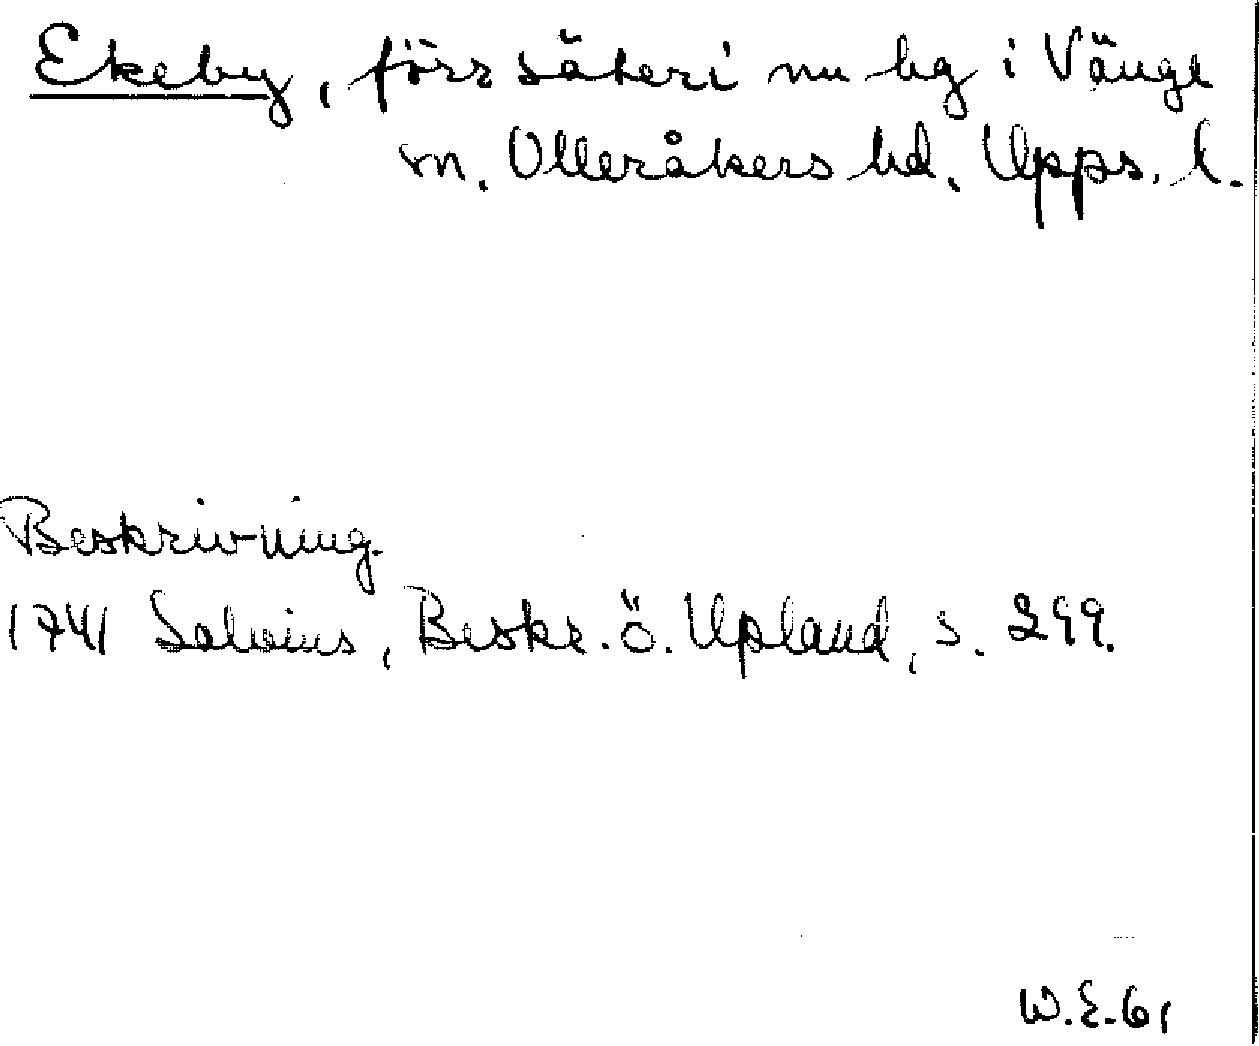 Ekeby, förr säteri nu hg i Vänge
sn. Ulleråkers hd. Upps. l.
Beskrivning.
1741 Salvius, Beskr. ö. Upland, s. 299.
W.E.61